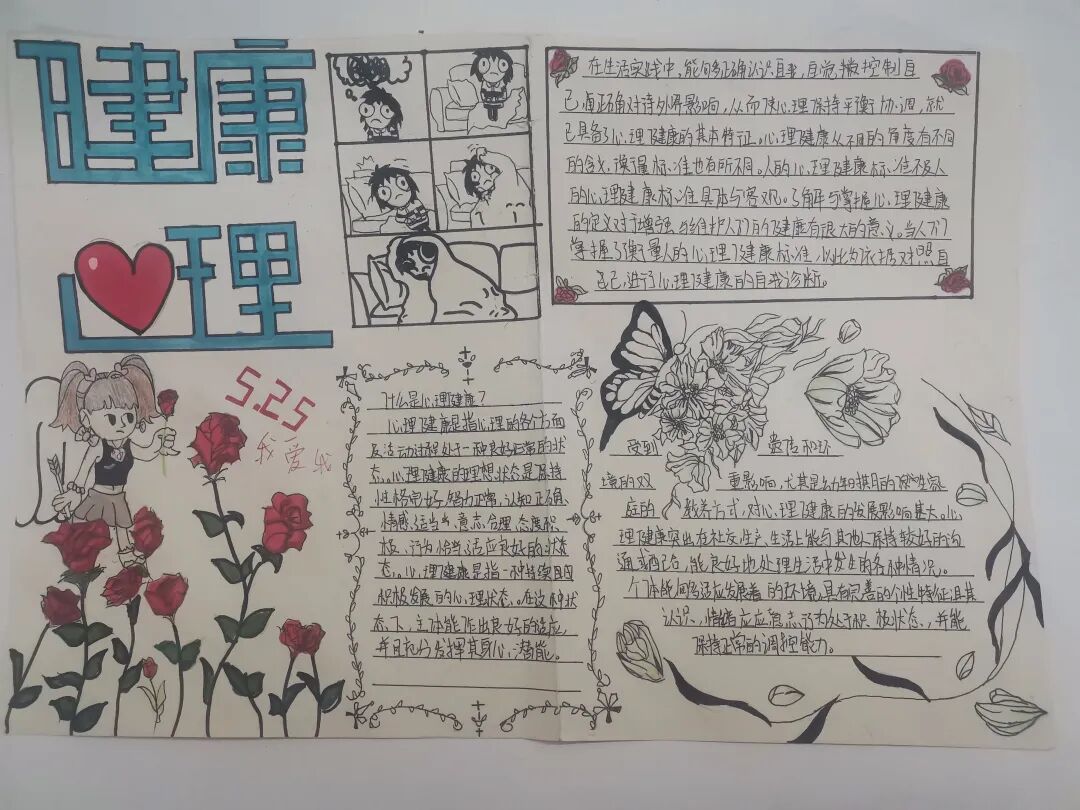 健康
心理
5.25
我爱我
在生活实践中,能够正确认识自我,自觉控制自
己,正确对待外界影响,从而使心理保持平衡协调,就
已具备了心理健康的基本特征。心理健康从不同的角度有不同
的含义,衡量标准也有所不同。人的心理健康标准不及人
的心理健康标准具体与客观。了解与掌握心理健康
的定义对于增强与维护人们的健康有很大的意义。当人们
掌握了衡量人的心理健康标准,以此为依据对照自
己,进行心理健康的自我诊断。
什么是心理健康?
心理健康是指心理的各个方面
及活动过程处于一种良好正常的状
态。心理健康的理想状态是保持
性格完好、智力正常、认知正确、
情感适当、意志合理、态度积
极、行为恰当、适应良好的状
态。心理健康是指一种持续且
积极发展的心理状态。在这种状
态下,主体能作出良好的适应,
并且充分发挥其身心潜能。
受到 遗传和环
境的双 重影响,尤其是幼年时期的
的 教养方式,对心理健康的发展影响甚大。心
理健康突出在社交、生产、生活上能与其他人保持较好的沟
通或配合,能良好地处理生活中发生的各种情况。
个体能够适应发展着的环境,具有完善的个性特征;且其
认识,情绪反应,意志行为处于积极状态,并能
保持正常的调控能力。